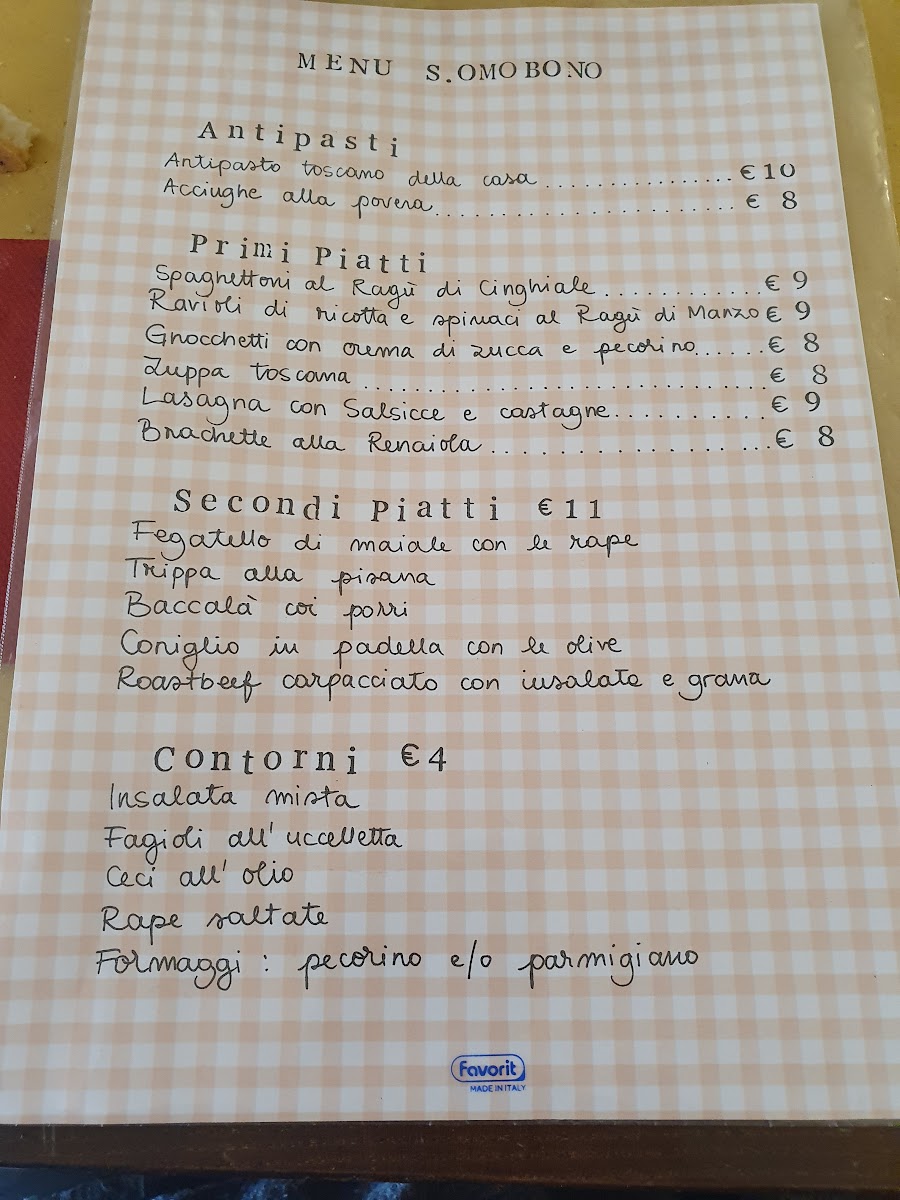 MENU S.OMOBONO
Antipasti
Antipasto toscano della casa................€10
Acciughe alla povera........................€ 8
Primi Piatti
Spaghettoni al Ragù di Cinghiale............€ 9
Ravioli di ricotta e spinaci al Ragù di Manzo€ 9
Gnocchetti con crema di zucca e pecorino......€ 8
Zuppa toscana...............................€ 8
Lasagna con Salsicce e castagne...........€ 9
Brachette alla Renaiola....................€ 8
Secondi Piatti €11
Fegatello di maiale con le rape
Trippa alla pisana
Baccalà coi porri
Coniglio in padella con le olive
Roastbeef carpacciato con insalate e grana
Contorni €4
Insalata mista
Fagioli all'uccelletta
Ceci all'olio
Rape saltate
Formaggi: pecorino e/o parmigiano
Favorit
MADE IN ITALY